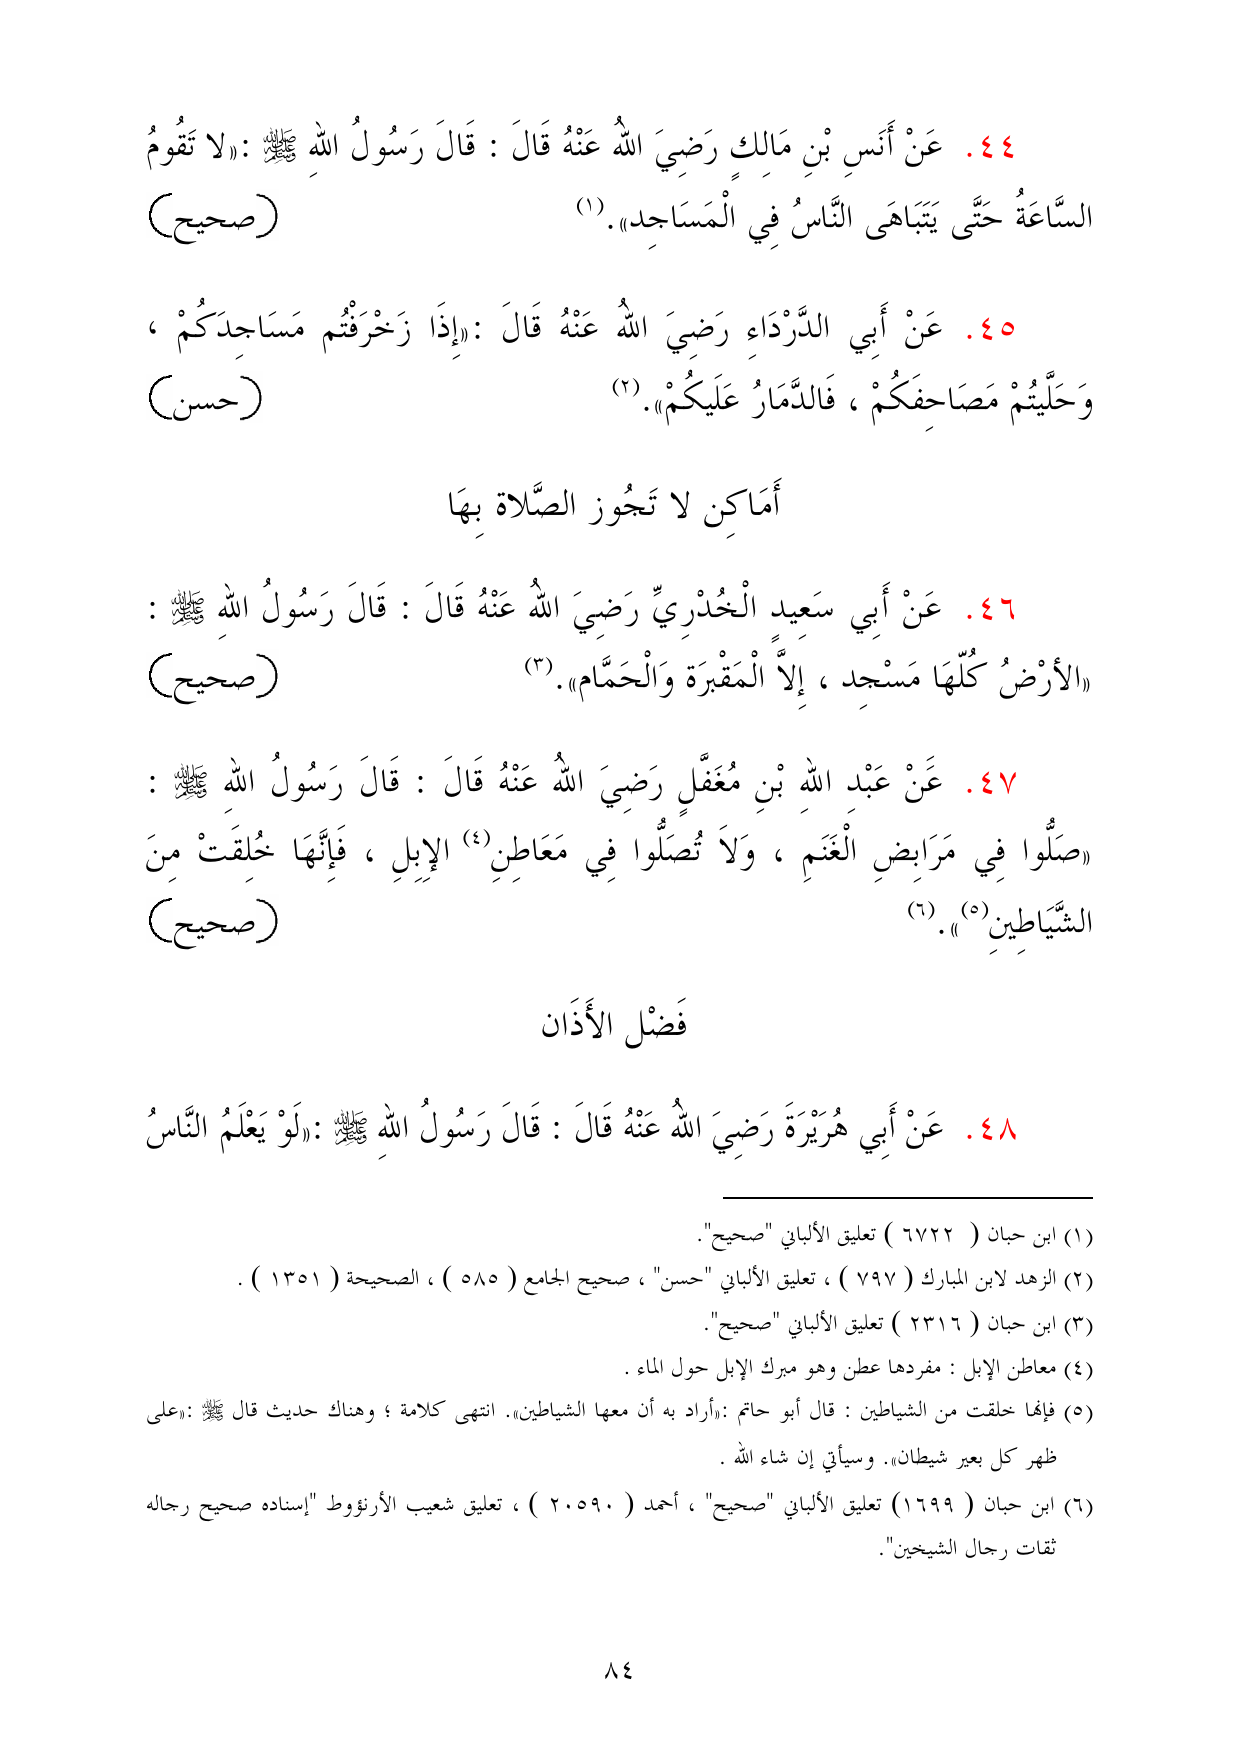 ٤٤. عَنْ أَنَسِ بْنِ مَالِكٍ رَضِيَ اللهُ عَنْهُ قَالَ : قَالَ رَسُولُ اللهِ ﷺ :«لا تَقُومُ
السَّاعَةُ حَتَّى يَتَبَاهَى النَّاسُ فِي الْمَسَاجِد».(١) (صحيح)
٤٥. عَنْ أَبِي الدَّرْدَاءِ رَضِيَ اللهُ عَنْهُ قَالَ :«إِذَا زَخْرَفْتُم مَسَاجِدَكُمْ ،
وَحَلَّيتُمْ مَصَاحِفَكُمْ ، فَالدَّمَارُ عَلَيكُمْ».(٢) (حسن)
أَمَاكِن لا تَجُوز الصَّلاة بِهَا
٤٦. عَنْ أَبِي سَعِيدٍ الْخُدْرِيِّ رَضِيَ اللهُ عَنْهُ قَالَ : قَالَ رَسُولُ اللهِ ﷺ :
«الأرْضُ كُلّهَا مَسْجِد ، إِلاَّ الْمَقْبرَة وَالْحَمَّام».(٣) (صحيح)
٤٧. عَنْ عَبْدِ اللهِ بْنِ مُغَفَّلٍ رَضِيَ اللهُ عَنْهُ قَالَ : قَالَ رَسُولُ اللهِ ﷺ :
«صَلُّوا فِي مَرَابِضِ الْغَنَمِ ، وَلاَ تُصَلُّوا فِي مَعَاطِنِ(٤) الإِبِلِ ، فَإِنَّهَا خُلِقَتْ مِنَ
الشَّيَاطِينِ(٥)».(٦) (صحيح)
فَضْل الأَذَان
٤٨. عَنْ أَبِي هُرَيْرَةَ رَضِيَ اللهُ عَنْهُ قَالَ : قَالَ رَسُولُ اللهِ ﷺ :«لَوْ يَعْلَمُ النَّاسُ
(١) ابن حبان ( ٦٧٢٢ ) تعليق الألباني "صحيح".
(٢) الزهد لابن المبارك ( ٧٩٧ ) ، تعليق الألباني "حسن" ، صحيح الجامع ( ٥٨٥ ) ، الصحيحة ( ١٣٥١ ) .
(٣) ابن حبان ( ٢٣١٦ ) تعليق الألباني "صحيح".
(٤) معاطن الإبل : مفردها عطن وهو مبرك الإبل حول الماء .
(٥) فإنها خلقت من الشياطين : قال أبو حاتم :«أراد به أن معها الشياطين». انتهى كلامة ؛ وهناك حديث قال ﷺ :«على
ظهر كل بعير شيطان». وسيأتي إن شاء الله .
(٦) ابن حبان ( ١٦٩٩) تعليق الألباني "صحيح" ، أحمد ( ٢٠٥٩٠ ) ، تعليق شعيب الأرنؤوط "إسناده صحيح رجاله
ثقات رجال الشيخين".
٨٤